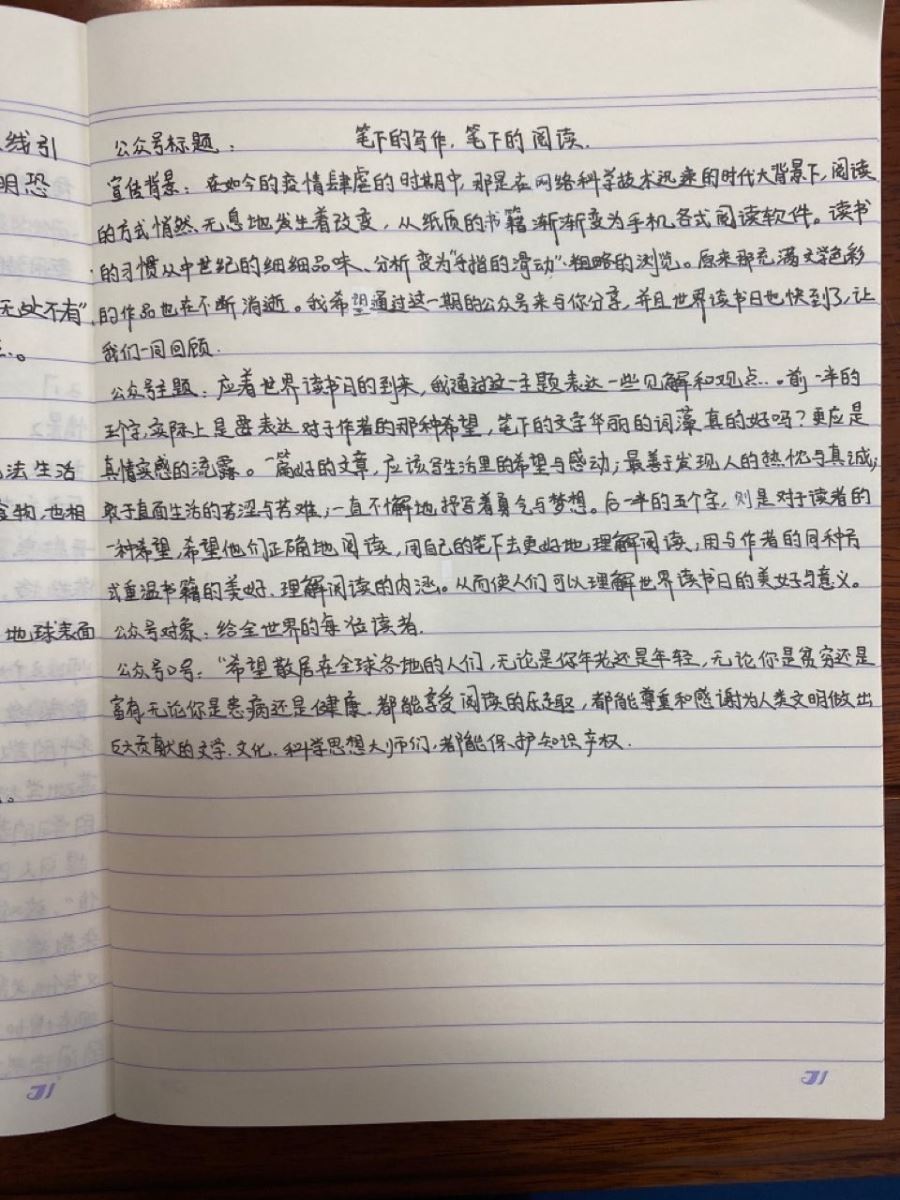 线引
明恐
无处不有"
法生活
食物,也相
地球表面
公众号标题: 笔下的写作,笔下的阅读.
宣传背景:在如今的疫情肆虐的时期中,那是在网络科学技术迅速的时代大背景下,阅读
的方式悄然、无息地发生着改变,从纸质的书籍渐渐变为手机各式阅读软件。读书
的习惯从中世纪的细细品味、分析变为"手指的滑动"粗略的浏览。原来那充满文学色彩
的作品也在不断消逝。我希望通过这一期的公众号来与你分享,并且世界读书日也快到了,让
我们一同回顾.
公众号主题:应着世界读书日的到来,我通过这一主题表达一些见解和观点...。前一半的
五个字,实际上是要表达对于作者的那种希望,笔下的文字华丽的词藻真的好吗?更应是
真情实感的流露。一篇好的文章,应该写生活里的希望与感动;最善于发现人的热忱与真诚;
敢于直面生活的苦涩与苦难;一直不懈地抒写着勇气与梦想。后一半的五个字,则是对于读者的
一种希望,希望他们正确地阅读,用自己的笔下去更好地理解阅读,用与作者的同种方
式重温书籍的美好、理解阅读的内涵。从而使人们可以理解世界读书日的美好与意义。
公众号对象:给全世界的每位读者.
公众号口号:"希望散居在全球各地的人们,无论是你年老还是年轻,无论你是贫穷还是
富有,无论你是患病还是健康,都能享受阅读的乐趣,都能尊重和感谢为人类文明做出
巨大贡献的文学、文化、科学思想大师们,都能保护知识产权.